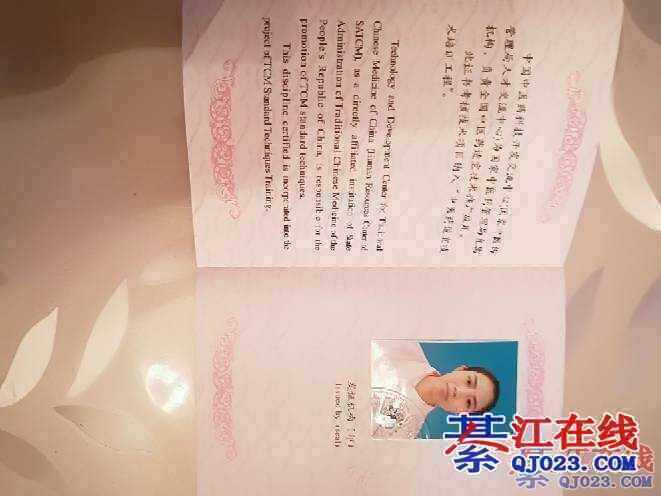 中国中医药科技开发交流中心(国家中医药
管理局人才交流中心)为国家中医药管理局直属
机构,负责全国中医药适宜技术推广项目。
此证书考核技术项目纳入“中医药适宜技
术培训工程”。
Technology and Development Center for Traditional
Chinese Medicine of China (Human Resources Center of
SATCM), as a directly affiliated institution of State
Administration of Traditional Chinese Medicine of the
People's Republic of China, is responsible for the
promotion of TCM standard techniques.
This discipline certified is incorporated into the
project of TCM Standard Techniques Training.
发证机构(印)
Issued by (seal)
綦江在线
QJ023.COM